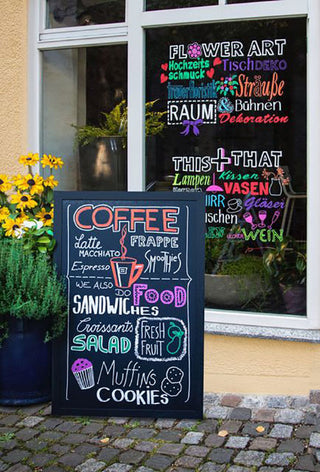 FLOWER ART
Hochzeits
schmuck
TischDEKO
Trauerfloristik
Sträuße
RAUM
& Bühnen
Dekoration
THIS + THAT
Lampen
Kissen
VASEN
GESCHIRR
Gläser
WEIN
COFFEE
Latte
MACCHIATO
FRAPPE
Espresso
Smoothies
WE ALSO DO
FOOD
SANDWICHES
Croissants
SALAD
FRESH
FRUIT
Muffins
COOKIES